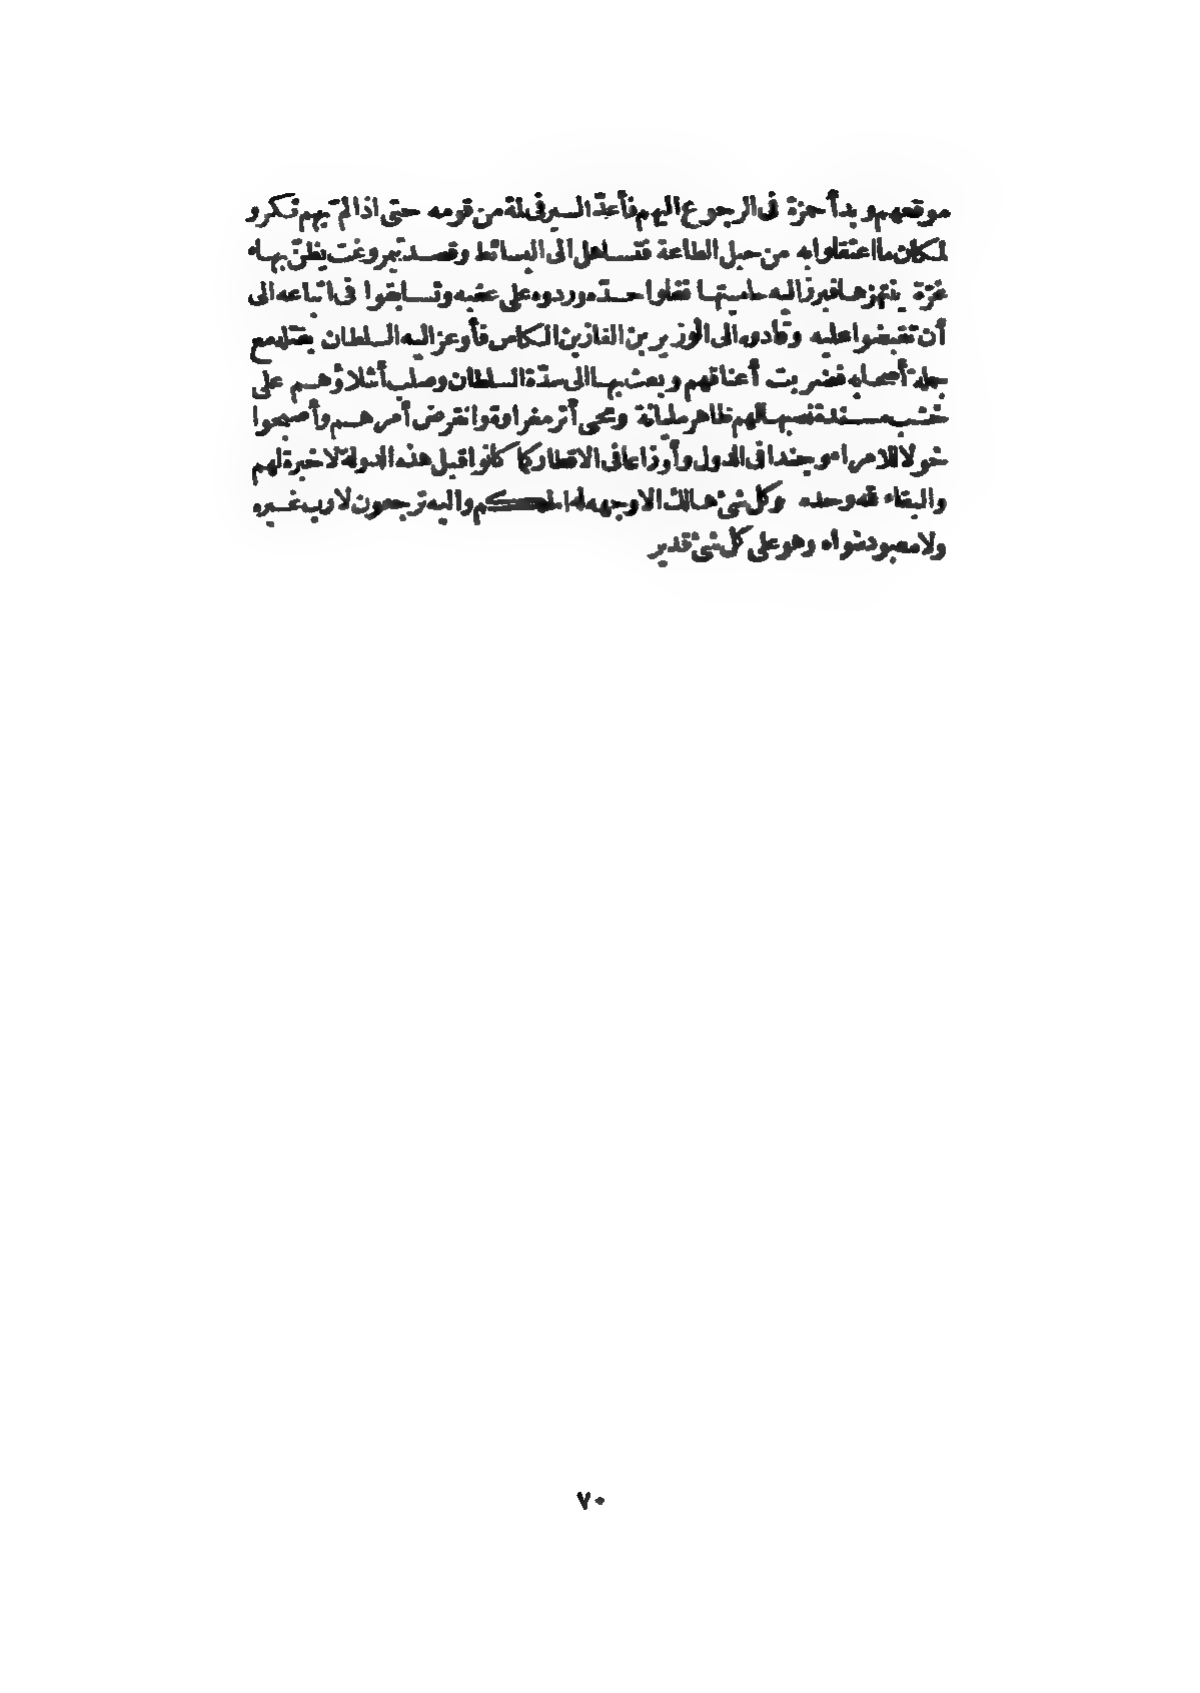 موقعهم وبدأ حمزة فى الرجوع اليهم فأغذ السير فى لمة من قومه حتى اذا ألم بهم تنكروا
لمكان ما اعتقلوا به من حبل الطاعة فتساهل الى البسائط وقصد تيمروغت يظن بها
غرة ينتهزها فبرز اليه حاميتها ففلوا حده وردوه على عقبه وتسابقوا فى اتباعه الى
أن تقبضوا عليه وقادوه الى الوزير بن الغازى بن الكاس فأوعز اليه السلطان بقتله مع
جملة أصحابه فضربت أعناقهم وبعث بها الى سدة السلطان وصلب أشلاؤهم على
خشب مسندة نصبها لهم ظاهر مليانة ومحى أثر مغراوة وانقرض أمرهم وأصبحوا
خولا للامراء وجندا فى الدول وأوزاعا فى الاقطار كما كانوا قبل هذه الدولة لاخيرة لهم
والبقاء لله وحده وكل شئ هالك الا وجهه له الحكم واليه ترجعون لا رب غيره
ولا معبود سواه وهو على كل شئ قدير
٧٠